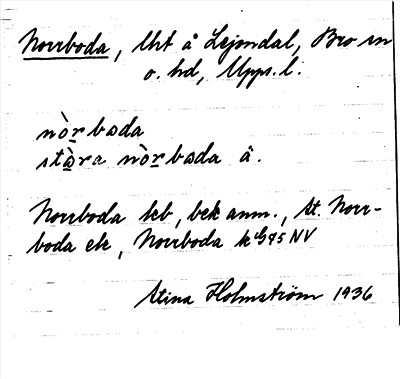 Norrboda, lht å Lejondal, Bro sn
o. hd, Upps. l.
nòrboda
stòra nòrboda å.
Norrboda hb, bek anm., St. Norr-
boda ek, Norrboda k 95 NV
Stina Holmström 1936